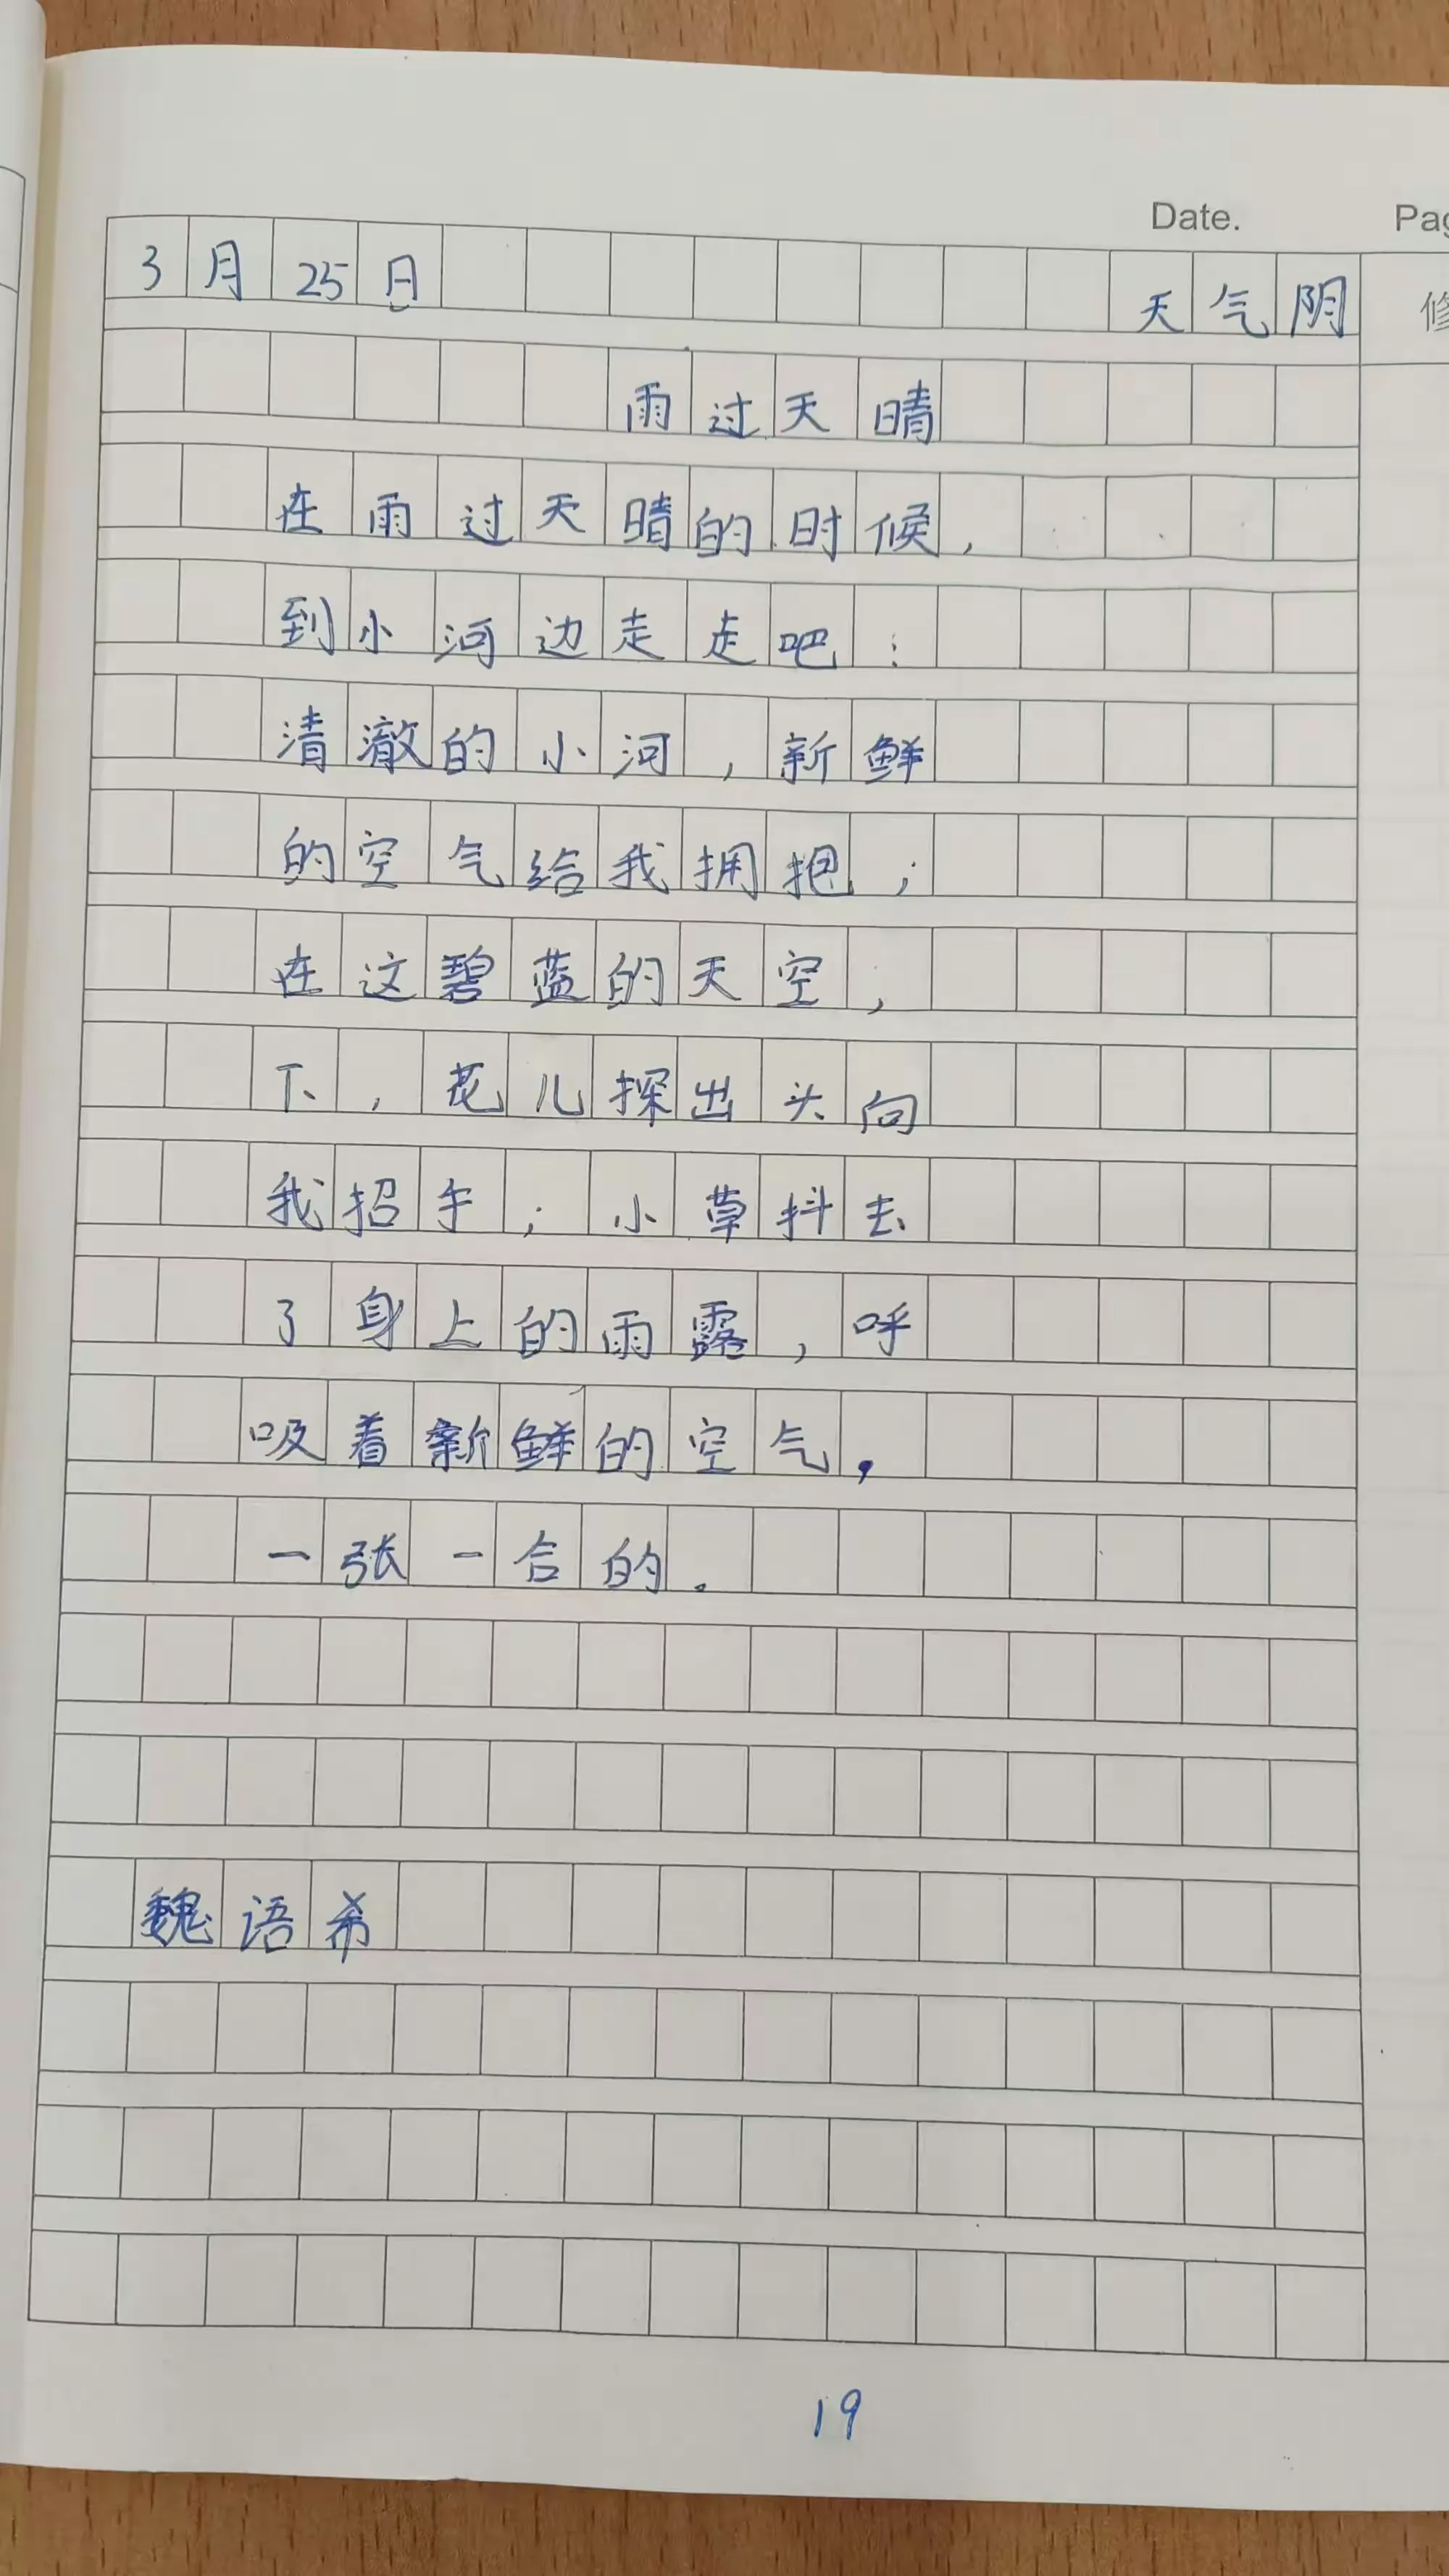 Date.
3月25日 天气阴
雨过天晴
在雨过天晴的时候，
到小河边走走吧：
清澈的小河，新鲜
的空气给我拥抱；
在这碧蓝的天空，
下，花儿探出头向
我招手；小草抖去
了身上的雨露，呼
吸着新鲜的空气，
一张一合的.
魏语希
19